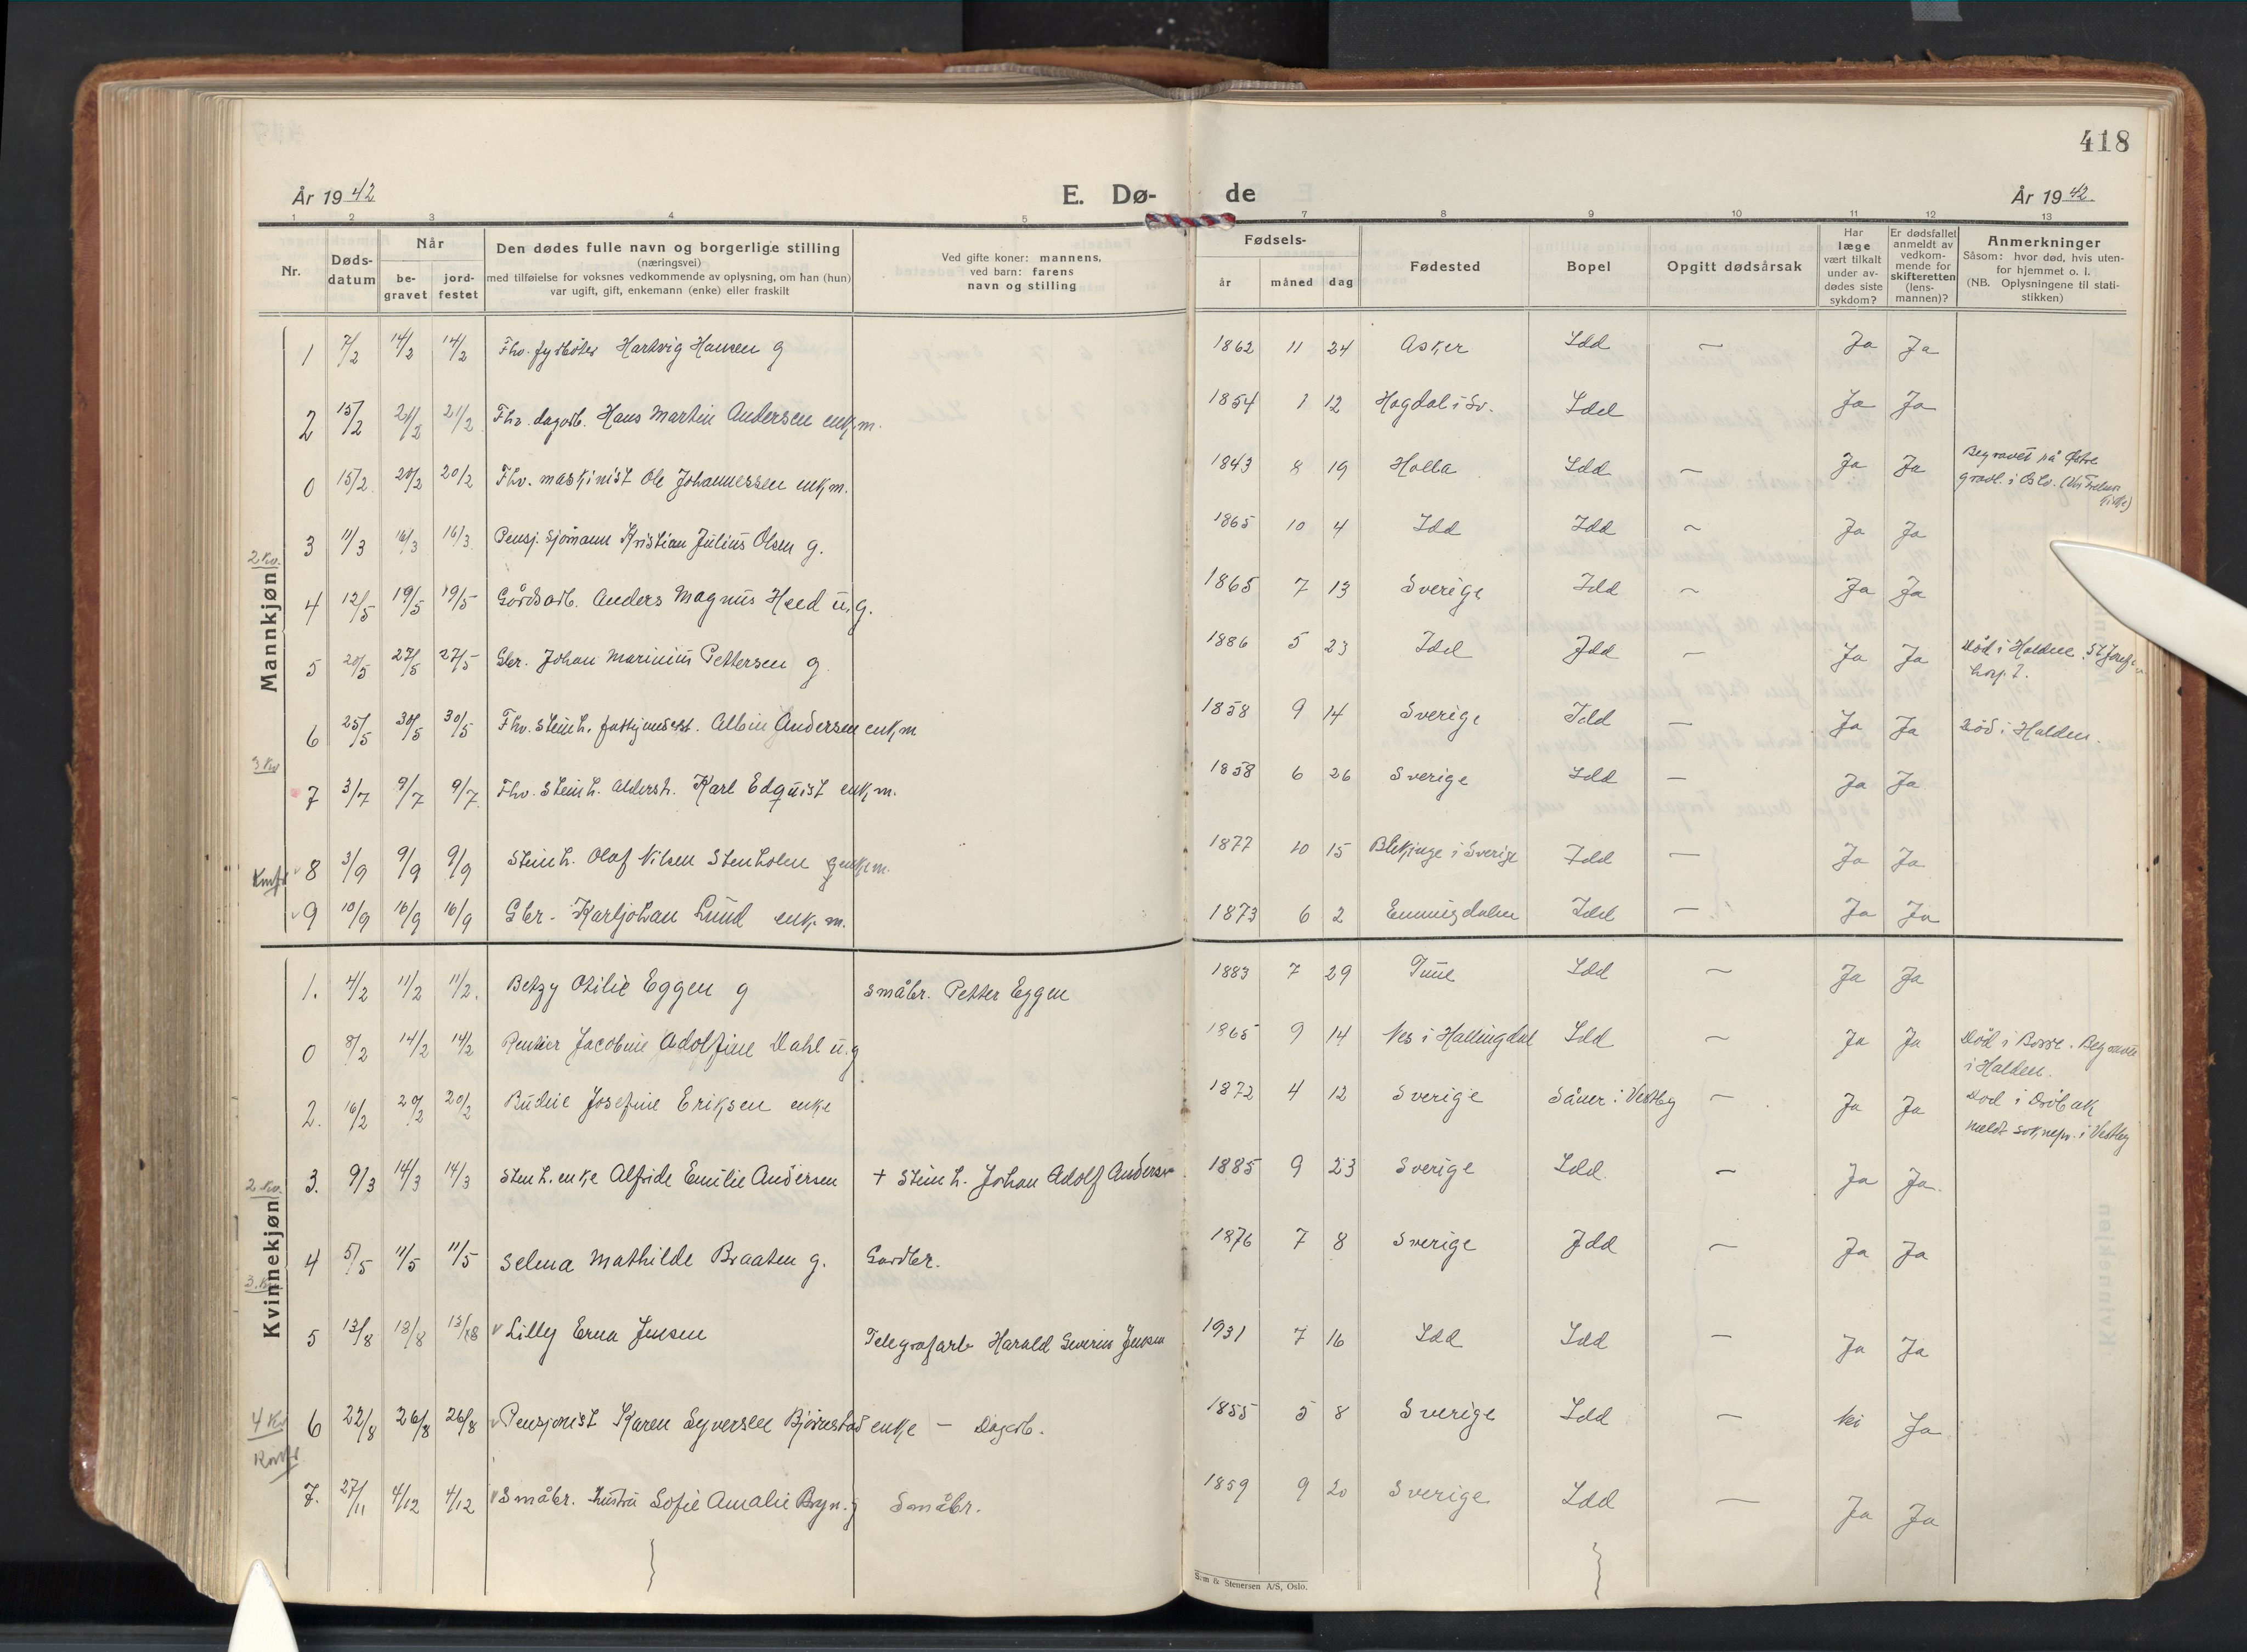 418
År 1942
E. Dø-
de
År 1942
1 2 3 4 5 7 8 9 10 11 12 13
Nr.
Døds-
datum
Når
be-
gravet
jord-
festet
Den dødes fulle navn og borgerlige stilling
(næringsvei)
med tilføielse for voksnes vedkommende av oplysning, om han (hun)
var ugift, gift, enkemann (enke) eller fraskilt
Ved gifte koner: mannens,
ved barn: farens
navn og stilling
Fødsels-
år måned dag
Fødested
Bopel
Opgitt dødsårsak
Har
læge
vært tilkalt
under av-
dødes siste
sykdom?
Er dødsfallet
anmeldt av
vedkom-
mende for
skifteretten
(lens-
mannen)?
Anmerkninger
Såsom: hvor død, hvis uten-
for hjemmet o. l.
(NB. Oplysningene til stati-
stikken)
Mannkjøn
1 7/2 14/2 14/2 Fhv. fyrbøter Hartvig Hansen g 1862 11 24 Asker Idd — Ja Ja
2 15/2 21/2 21/2 Fhv. dagarb. Hans Martin Andersen enk.m. 1854 1 12 Hogdal i Sv. Idd Ja Ja
0 15/2 20/2 20/2 Fhv. maskinist Ole Johannessen enk m. 1843 8 19 Holla Idd — Ja Ja Begravet på Østre
gravl. i Oslo.
3 11/3 16/3 16/3 Pensj. sjømann Kristian Julius Olsen g. 1865 10 4 Idd Idd — Ja Ja
2 kv.
4 12/5 19/5 19/5 Gårdsarb. Anders Magnus Hed u.g. 1865 7 13 Sverige Idd — Ja Ja
5 20/5 27/5 27/5 Gbr. Johan Marinius Pettersen g 1886 5 23 Idd Idd — Ja Ja Død i Halden. St. Josefs
hosp.
6 25/5 30/5 30/5 Fhv. steinh. Albin Andersen enk m 1858 9 14 Sverige Idd — Ja Ja Død i Halden.
3 Kv
7 3/7 9/7 9/7 Fhv. Steinh. alderst. Karl Edquist enk m. 1858 6 26 Sverige Idd — Ja Ja
8 3/9 9/9 9/9 Steinh. Olaf Nilsen Stenholm enk m. 1877 10 15 Blekinge i Sverige Idd — Ja Ja
9 10/9 16/9 16/9 Gbr. Karljohan Lund enk. m. 1873 6 2 Enningdalen Idd — Ja Ja
Kvinnekjøn
1. 4/2 11/2 11/2. Betzy Otilie Eggen g småbr. Petter Eggen 1883 7 29 Tune Idd — Ja Ja
0 8/2 14/2 14/2 Rentier Jacobine Adolfine Dahl u.g 1865 9 14 Nes i Hallingdal Idd — Ja Ja Død i Borre. Begravet
i Halden.
2. 16/2 20/2 20/2 Josefine Eriksen enke 1872 4 12 Sverige Såner i Vestby — Ja Ja Død i Drøbak
meldt soknepr. i Vestby
2 kv.
3. 9/3 14/3 14/3 Steinh. enke Alfride Emilie Andersen + Steinh. Johan Adolf Andersen 1885 9 23 Sverige Idd. — Ja Ja.
4 5/5 11/5 11/5 Selma Mathilde Braaten g. Gardbr. 1876 7 8 Sverige Idd — Ja Ja
3. kv.
5 13/8 18/8 18/8 v Lilly Erna Jensen Telegrafarb Harald Severin Jensen 1931 7 16 Idd Idd — Ja Ja
4 Kv
6 22/8 26/8 26/8 v Pensjonist Karen Syversen Bjørnstad enke — Dagarb. 1855 5 8 Sverige Idd — Nei Ja
7. 27/11 4/12 4/12 v Småbr. hustru Sofie Amalie Bryn. g Småbr. 1859 9 20 Sverige Idd — Ja Ja
Sem & Stenersen A/S, Oslo.